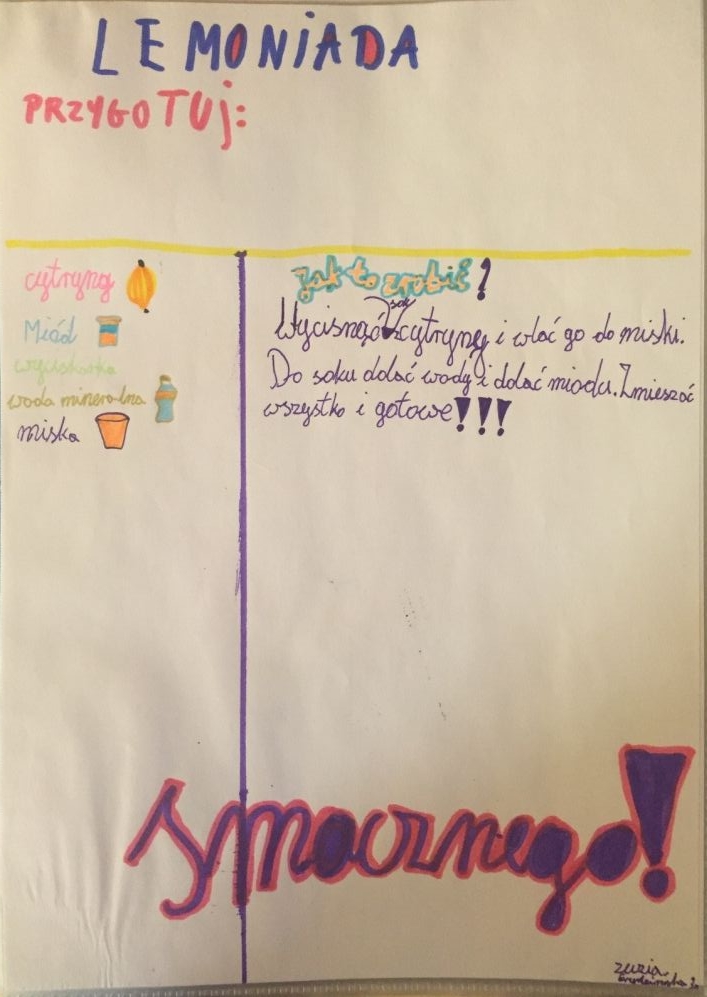 LEMONiADA
PRZYGOTUj:
cytryny
Miód
wyciskarka
woda mineralna
miska
Jak to zrobić?
sok
Wycisnąć z cytryny i wlać go do miski.
Do soku dolać wody i dolać miodu. Zmieszać
wszystko i gotowe!!!
Smacznego!
zuzia